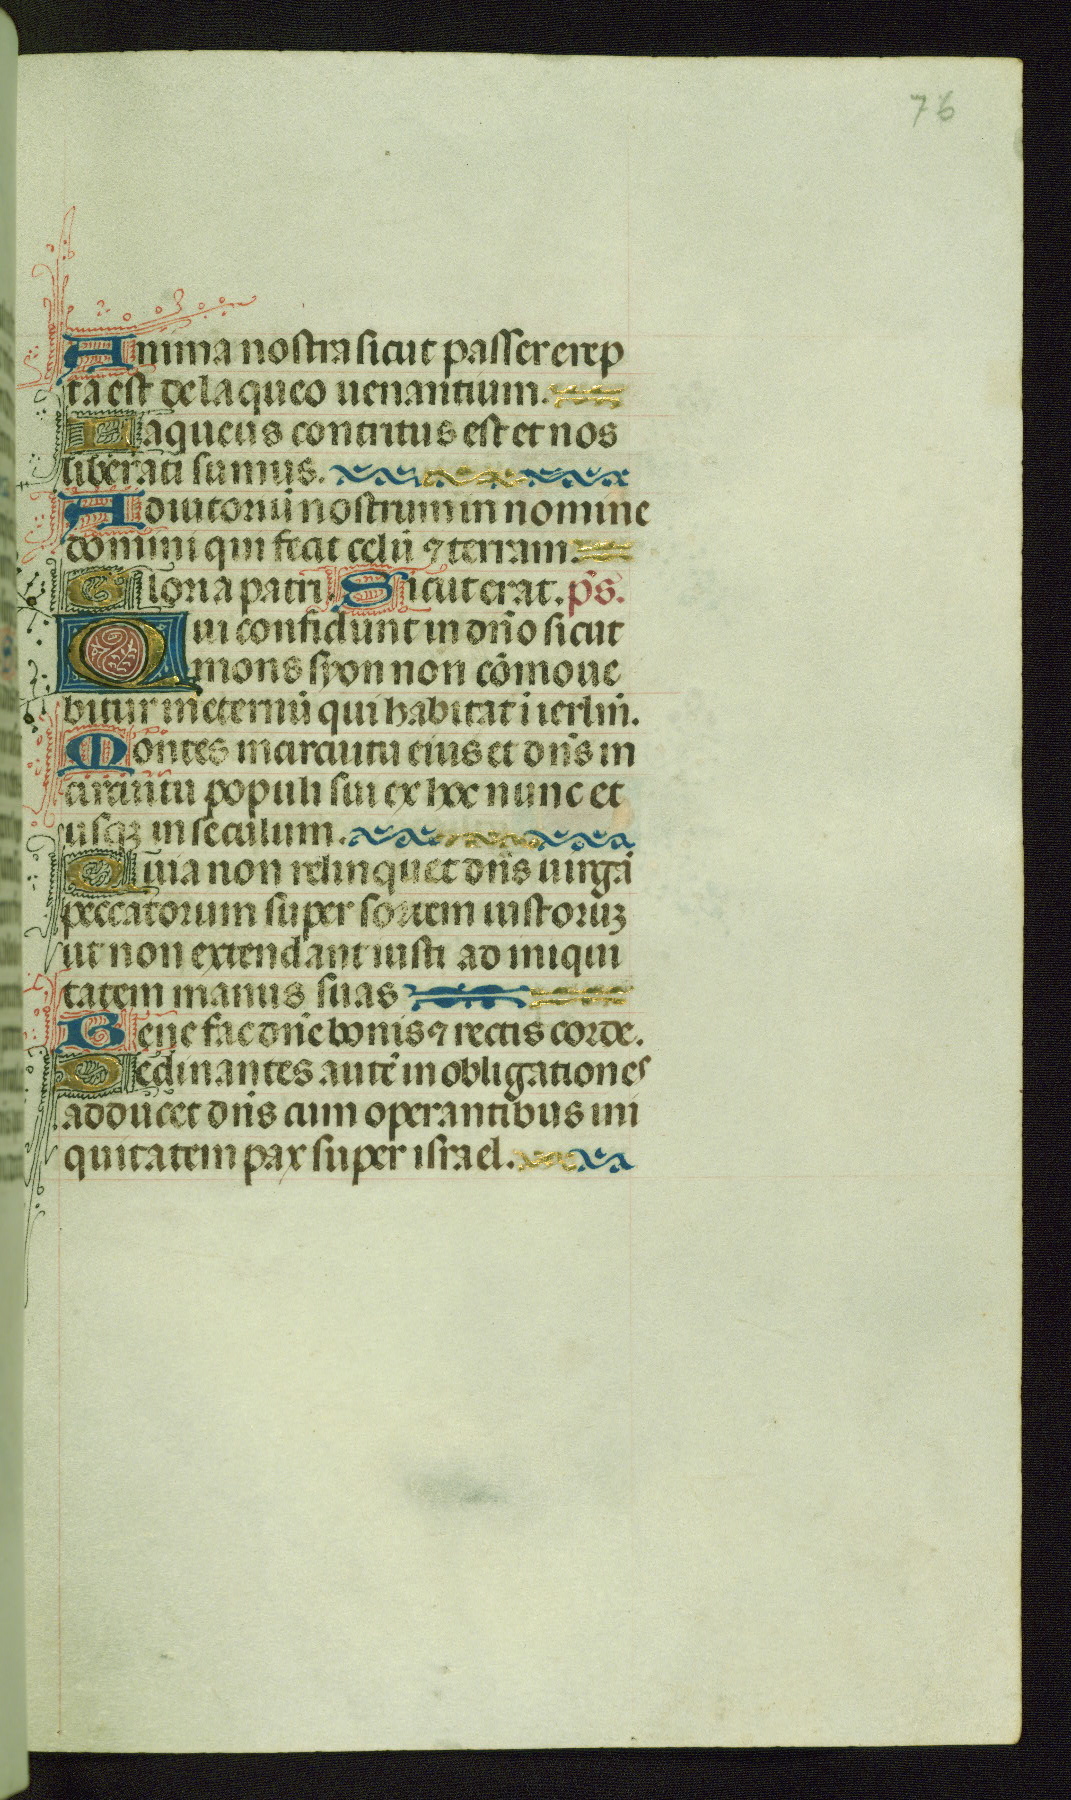 76
Anima nostra sicut passer erep
ta est de laqueo uenantium.
Laqueus contritus est et nos
liberati sumus.
Adiutoriū nostrum in nomine
domini qui fecit celū ⁊ terram.
Gloria patri. Sicut erat. p̄s.
Qui confidunt in dn̄o sicut
mons syon non cōmoue
bitur in eternū qui habitat ī ierl̄m.
Montes in circuitu eius et dn̄s in
circuitu populi sui ex hoc nunc et
usqꝫ in seculum.
Quia non relinquet dn̄s uirgā
peccatorum super sortem iustoruꝫ
ut non extendant iusti ad iniqui
tatem manus suas
Bene fac dn̄e bonis ⁊ rectis corde.
Declinantes autē in obligationes
adducet dn̄s cum operantibus ini
quitatem pax super israel.